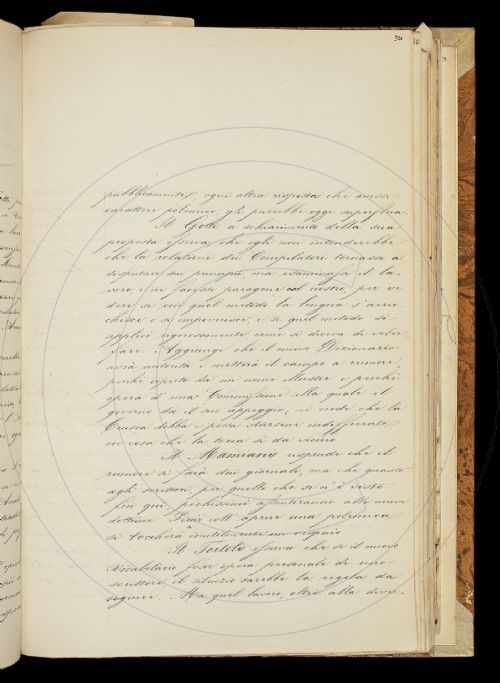 pubblicamente, ogni altra risposta che avesse
carattere polemico, gli parrebbe oggi superflua.
Il Gotti a schiarimento della sua
proposta osserva che egli non intenderebbe
che la relazione dei Compilatori tornasse a
disputare sui principii, ma esaminasse il la-
voro, e ne facesse paragone col nostro, per ve-
dere se con quel metodo la lingua s'arric-
chisce o s'impoverisce, e se quel metodo si
applica rigorosamente come si diceva di voler
fare. Aggiunge che il nuovo Dizionario
avrà autorità e metterà il campo a rumore,
perchè coperto da un nome illustre e perchè
opera d'una Commissione alla quale il
governo dà il suo appoggio; nè crede che la
Crusca debba e possa starsene indifferente
in cosa che la tocca sì da vicino.
Il Mamiani risponde che il
rumore si farà dai giornali, ma che quanto
agli scrittori, per quello che se n'è visto
fin qui, pochissimi assentiranno alle nuove
dottrine. Però coll' aprire una polemica
si toccherà inutilmente un vespaio.
Il Tortoli osserva che se il nuovo
Vocabolario fosse opera personale di uno
scrittore, il silenzio sarebbe la regola da
seguire. Ma quel lavoro, oltre alla dive-